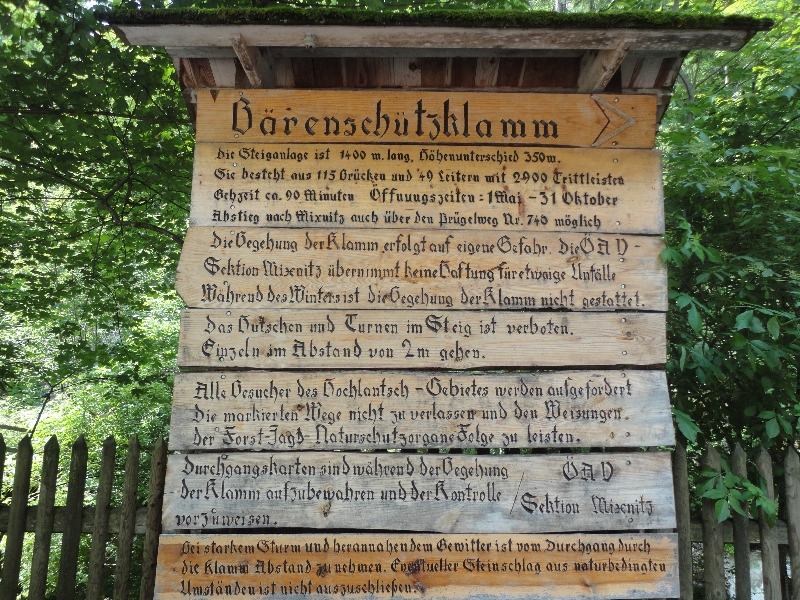 Bärenschützklamm
Die Steiganlage ist 1400 m. lang, Höhenunterschied 350m.
Sie besteht aus 115 Brücken und 49 Leitern mit 2900 Trittleisten
Gehzeit ca. 90 Minuten Öffnungszeiten: 1 Mai - 31 Oktober
Abstieg nach Mixnitz auch über den Prügelweg Nr. 740 möglich
Die Begehung der Klamm erfolgt auf eigene Gefahr. Die ÖAV -
Sektion Mixnitz übernimmt keine Haftung für etwaige Unfälle
Während des Winters ist die Begehung der Klamm nicht gestattet.
Das Hutschen und Turnen im Steig ist verboten.
Einzeln im Abstand von 2m gehen.
Alle Besucher des Hochlantsch - Gebietes werden aufgefordert
Die markierten Wege nicht zu verlassen und den Weisungen.
der Forst-Jagd-Naturschutzorgane Folge zu leisten.
Durchgangskarten sind während der Begehung
der Klamm aufzubewahren und der Kontrolle
vorzuweisen.
ÖAV
/ Sektion Mixnitz
Bei starkem Sturm und herannahendem Gewitter ist vom Durchgang durch
die Klamm Abstand zu nehmen. Eventueller Steinschlag aus naturbedingten
Umständen ist nicht auszuschließen.